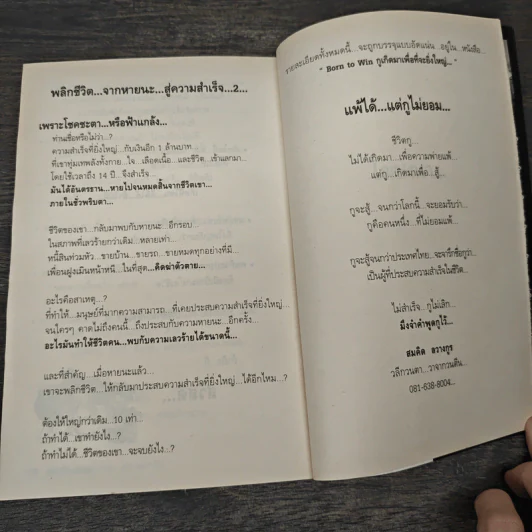 พลิกชีวิต...จากหายนะ...สู่ความสำเร็จ...2...
เพราะโชคชะตา...หรือฟ้าแกล้ง...
ท่านเชื่อหรือไม่ว่า...?
ความสำเร็จที่ยิ่งใหญ่...กับเงินอีก 1 ล้านบาท
ที่เขาทุ่มเทพลังทั้งกาย...ใจ...เลือดเนื้อ...และชีวิต...เข้าแลกมา...
โดยใช้เวลาถึง 14 ปี...จึงสำเร็จ...
มันได้อันตรธาน...หายไปจนหมดสิ้นจากชีวิตเขา...
ภายในชั่วพริบตา...
ชีวิตของเขา...กลับมาพบกับหายนะ...อีกรอบ...
ในสภาพที่เลวร้ายกว่าเดิม...หลายเท่า...
หนี้สินท่วมหัว...ขายบ้าน...ขายรถ...ขายหมดทุกอย่างที่มี...
เพื่อนฝูงเมินหน้าหนี...ในที่สุด...คิดฆ่าตัวตาย...
อะไรคือสาเหตุ...?
ที่ทำให้...มนุษย์ที่มากความสามารถ...ที่เคยประสบความสำเร็จที่ยิ่งใหญ่...
จนใครๆ คาดไม่ถึงคนนี้...ถึงประสบกับความหายนะ...อีกครั้ง...
อะไรมันทำให้ชีวิตคน...พบกับความเลวร้ายได้ขนาดนี้...
และที่สำคัญ...เมื่อหายนะแล้ว...
เขาจะพลิกชีวิต...ให้กลับมาประสบความสำเร็จที่ยิ่งใหญ่...ได้อีกไหม...?
ต้องให้ใหญ่กว่าเดิม...10 เท่า...
ถ้าทำได้...เขาทำยังไง...?
ถ้าทำไม่ได้...ชีวิตของเขา...จะจบยังไง...?
รายละเอียดทั้งหมดนี้...จะถูกบรรจุแบบอัดแน่น...อยู่ใน...หนังสือ...
" Born to Win กูเกิดมาเพื่อที่จะยิ่งใหญ่... "
แพ้ได้...แต่กูไม่ยอม...
ชีวิตกู...
ไม่ได้เกิดมา...เพื่อความพ่ายแพ้...
แต่กู...เกิดมาเพื่อ...สู้...
กูจะสู้...จนกว่าโลกนี้...จะยอมรับว่า...
กูคือคนหนึ่ง...ที่ไม่ยอมแพ้...
กูจะสู้จนกว่าประเทศไทย...จะจารึกชื่อกูว่า...
เป็นผู้ที่ประสบความสำเร็จในชีวิต...
ไม่สำเร็จ...กูไม่เลิก...
มึงจำคำพูดกูไว้...
สมคิด ลวางกูร
วลีกวนตา...วาจากวนตีน...
081-638-8004...